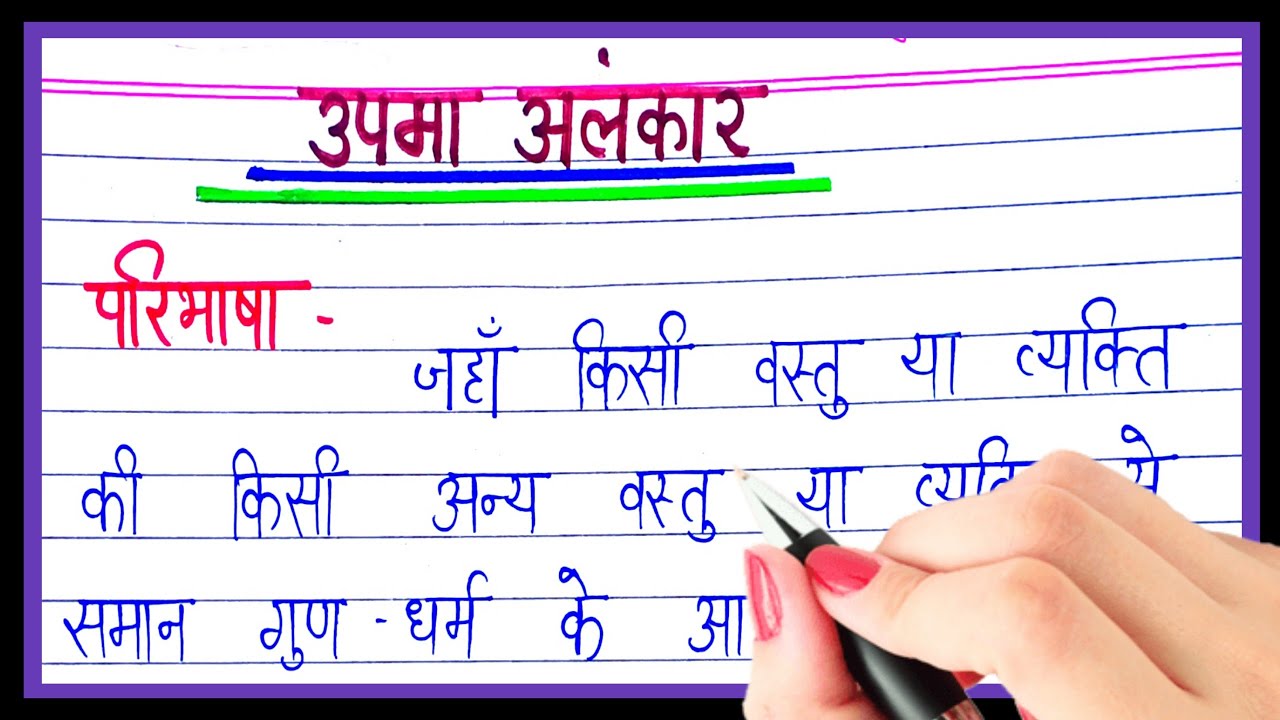 उपमा अलंकार
परिभाषा -
जहाँ किसी वस्तु या व्यक्ति
की किसी अन्य वस्तु या
समान गुण - धर्म के